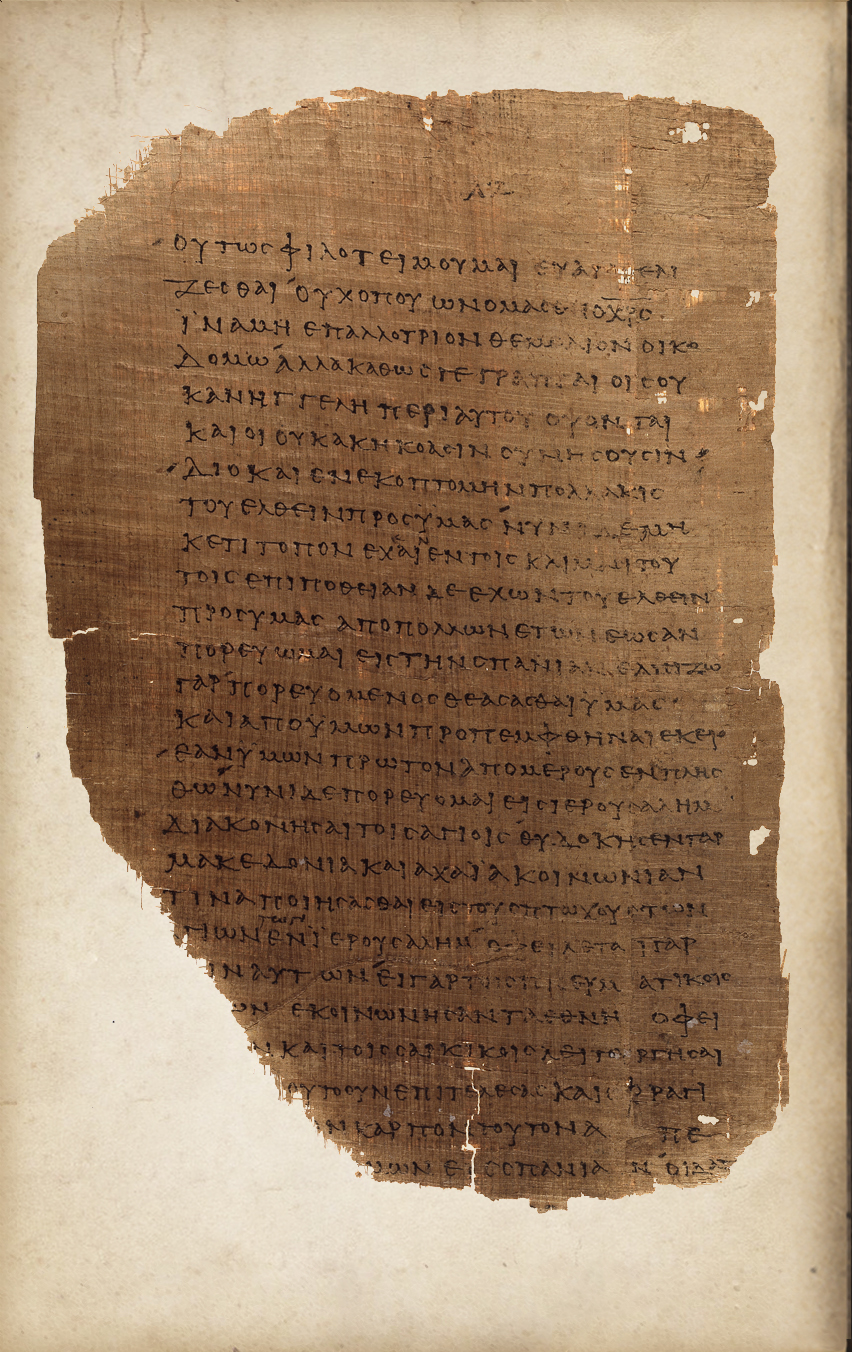 ΛΖ
ΟΥΤΩϹ ΦΙΛΟΤΕΙΜΟΥΜΑΙ ΕΥΑΓΓΕΛΙ
ΖΕϹΘΑΙ ΟΥΧ ΟΠΟΥ ΩΝΟΜΑϹΘ Ο ΧΡϹ
ΙΝΑ ΜΗ ΕΠ ΑΛΛΟΤΡΙΟΝ ΘΕΜΕΛΙΟΝ ΟΙΚΟ
ΔΟΜΩ ΑΛΛΑ ΚΑΘΩϹ ΓΕΓΡΑΠΤΑΙ ΟΙϹ ΟΥ
Κ ΑΝΗΓΓΕΛΗ ΠΕΡΙ ΑΥΤΟΥ ΟΨΟΝΤΑΙ
ΚΑΙ ΟΙ ΟΥΚ ΑΚΗΚΟΑϹΙΝ ϹΥΝΗϹΟΥϹΙΝ
ΔΙΟ ΚΑΙ ΕΝΕΚΟΠΤΟΜΗΝ ΠΟΛΛΑΚΙϹ
ΤΟΥ ΕΛΘΕΙΝ ΠΡΟϹ ΥΜΑϹ ΝΥΝΙ ΔΕ ΜΗ
ΚΕΤΙ ΤΟΠΟΝ ΕΧΩΝ ΕΝ ΤΟΙϹ ΚΛΙΜΑϹΙ ΤΟΥ
ΤΟΙϹ ΕΠΙΠΟΘΕΙΑΝ ΔΕ ΕΧΩΝ ΤΟΥ ΕΛΘΕΙΝ
ΠΡΟϹ ΥΜΑϹ ΑΠΟ ΠΟΛΛΩΝ ΕΤΩΝ ΕΩϹ ΑΝ
ΠΟΡΕΥΩΜΑΙ ΕΙϹ ΤΗΝ ϹΠΑΝΙΑΝ ΕΛΠΙΖΩ
ΓΑΡ ΠΟΡΕΥΟΜΕΝΟϹ ΘΕΑϹΑϹΘΑΙ ΥΜΑϹ
ΚΑΙ ΑΠΟ ΥΜΩΝ ΠΡΟΠΕΜΦΘΗΝΑΙ ΕΚΕΙ
ΕΑΝ ΥΜΩΝ ΠΡΩΤΟΝ ΑΠΟ ΜΕΡΟΥϹ ΕΝΠΛΗϹ
ΘΩ ΝΥΝΙ ΔΕ ΠΟΡΕΥΟΜΑΙ ΕΙϹ ΙΕΡΟΥϹΑΛΗΜ
ΔΙΑΚΟΝΗϹΑΙ ΤΟΙϹ ΑΓΙΟΙϹ ΗΥΔΟΚΗϹΕΝ ΓΑΡ
ΜΑΚΕΔΟΝΙΑ ΚΑΙ ΑΧΑΙΑ ΚΟΙΝΩΝΙΑΝ
ΤΙΝΑ ΠΟΙΗϹΑϹΘΑΙ ΕΙϹ ΤΟΥϹ ΠΤΩΧΟΥϹ ΤΩΝ
ΓΙΩΝ ΤΩΝ ΕΝ ΙΕΡΟΥϹΑΛΗΜ ΟΦΕΙΛΕΤΑΙ ΓΑΡ
ΙΝ ΑΥΤΩΝ ΕΙ ΓΑΡ ΤΟΙϹ ΠΝΕΥΜΑΤΙΚΟΙϹ
ΩΝ ΕΚΟΙΝΩΝΗϹΑΝ ΤΑ ΕΘΝΗ ΟΦΕΙ
Ν ΚΑΙ ΤΟΙϹ ϹΑΡΚΙΚΟΙϹ ΛΕΙΤΟΥΡΓΗϹΑΙ
ΟΥΤΟ ΟΥΝ ΕΠΙΤΕΛΕϹΑϹ ΚΑΙ ϹΦΡΑΓΙ
Ν ΚΑΡΠΟΝ ΤΟΥΤΟΝ Α ΠΕ
ΥΜΩΝ ΕΙϹ ϹΠΑΝΙΑΝ ΟΙΔΑ